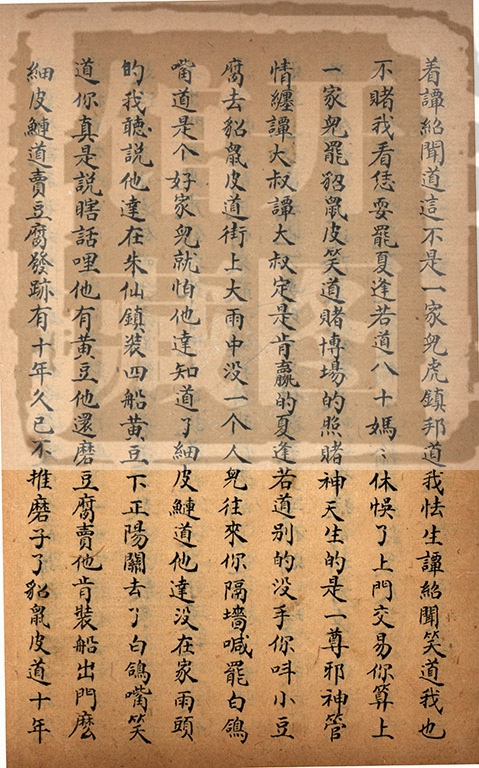 着譚紹聞道這不是一家兒虎鎮邦道我怯生譚紹聞笑道我也
不賭我看恁耍罷夏逢若道八十媽〻休悞了上門交易你算上
一家兒罷貂鼠皮笑道賭博場的照賭神天生的是一尊邪神管
情纏譚大叔譚大叔定是肯贏的夏逢若道别的没手你呌小豆
腐去貂鼠皮道街上大雨中没一个人兒往來你隔墻喊罷白鴿
嘴道是个好家兒就怕他達知道了細皮鰱道他達没在家南頭
的我聽說他達在朱仙鎮装四船黄豆下正陽關去了白鴿嘴笑
道你真是說瞎話哩他有黄豆他還磨豆腐賣他肯裝船出門麽
細皮鰱道賣豆腐發跡有十年久已不推磨子了貂鼠皮道十年